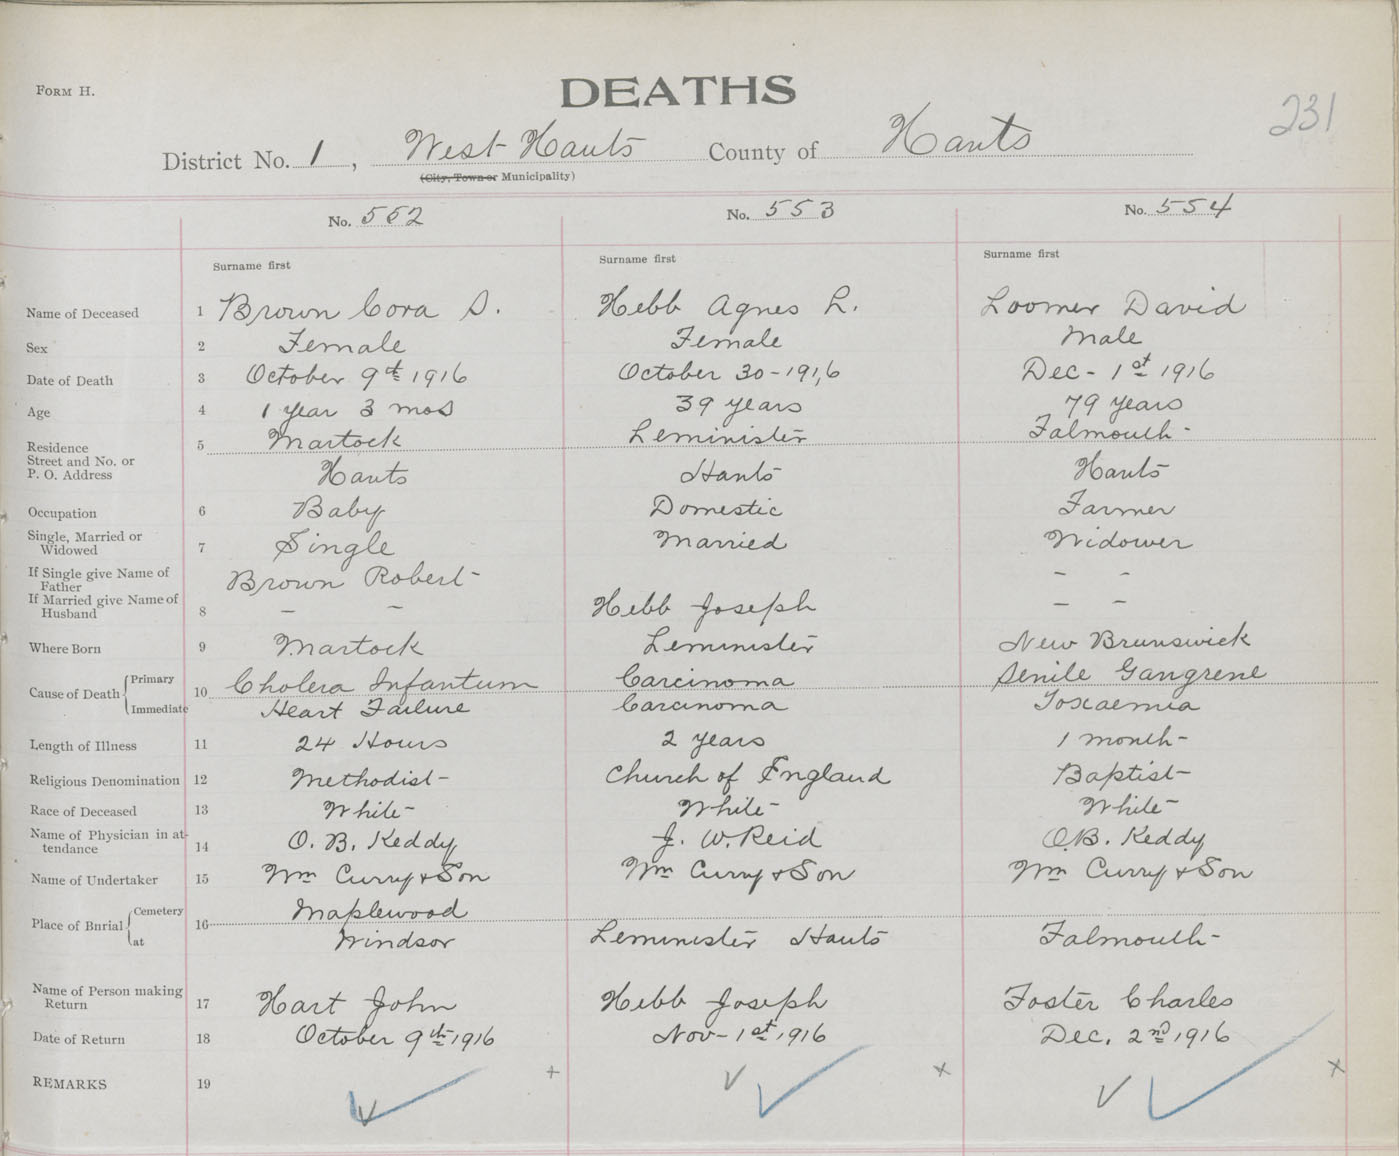 FORM H.
DEATHS
231
District No. 1, West Hants County of Hants
(City, Town or Municipality)
No. 552 No. 553 No. 554
Surname first Surname first Surname first
Name of Deceased 1 Brown Cora S. Hebb Agnes L. Loomer David
Sex 2 Female Female Male
Date of Death 3 October 9th 1916 October 30-1916 Dec- 1st 1916
Age 4 1 year 3 mos 39 years 79 years
Residence 5 Martock Leminister Falmouth
Street and No. or
P. O. Address Hants Hants Hants
Occupation 6 Baby Domestic Farmer
Single, Married or
Widowed 7 Single Married Widower
If Single give Name of
Father Brown Robert - -
If Married give Name of
Husband 8 - - Hebb Joseph - -
Where Born 9 Martock Leminister New Brunswick
Cause of Death { Primary 10 Cholera Infantum Carcinoma Senile Gangrene
Immediate Heart Failure Carcinoma Toxaemia
Length of Illness 11 24 Hours 2 years 1 month
Religious Denomination 12 Methodist Church of England Baptist
Race of Deceased 13 White White White
Name of Physician in at-
tendance 14 O. B. Keddy J. W. Reid O.B. Keddy
Name of Undertaker 15 Wm Curry + Son Wm Curry + Son Wm Curry + Son
Place of Burial { Cemetery 16 Maplewood
at Windsor Leminister Hants Falmouth
Name of Person making
Return 17 Hart John Hebb Joseph Foster Charles
Date of Return 18 October 9th 1916 Nov- 1st 1916 Dec. 2nd 1916
REMARKS 19